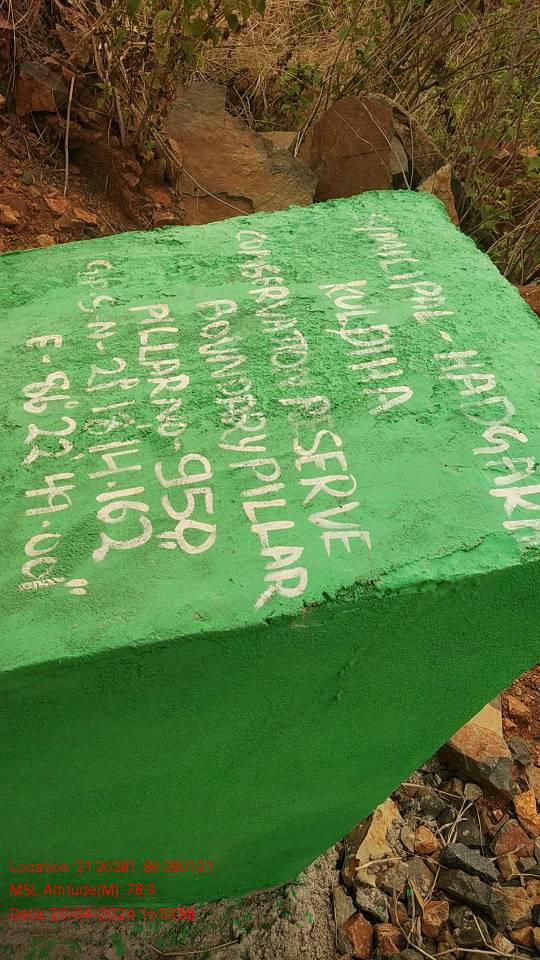 SIMILIPAL - HADGARH
KULDIHA
CONSERVATION RESERVE
BOUNDARY PILLAR
PILLAR NO- 959
GPS N- 21 18 14.162
E- 86 22 49.00"
Location: 21.30381, 86.380121
MSL Altitude(M): 78.9
Date: 20-04-2024 16:53:58